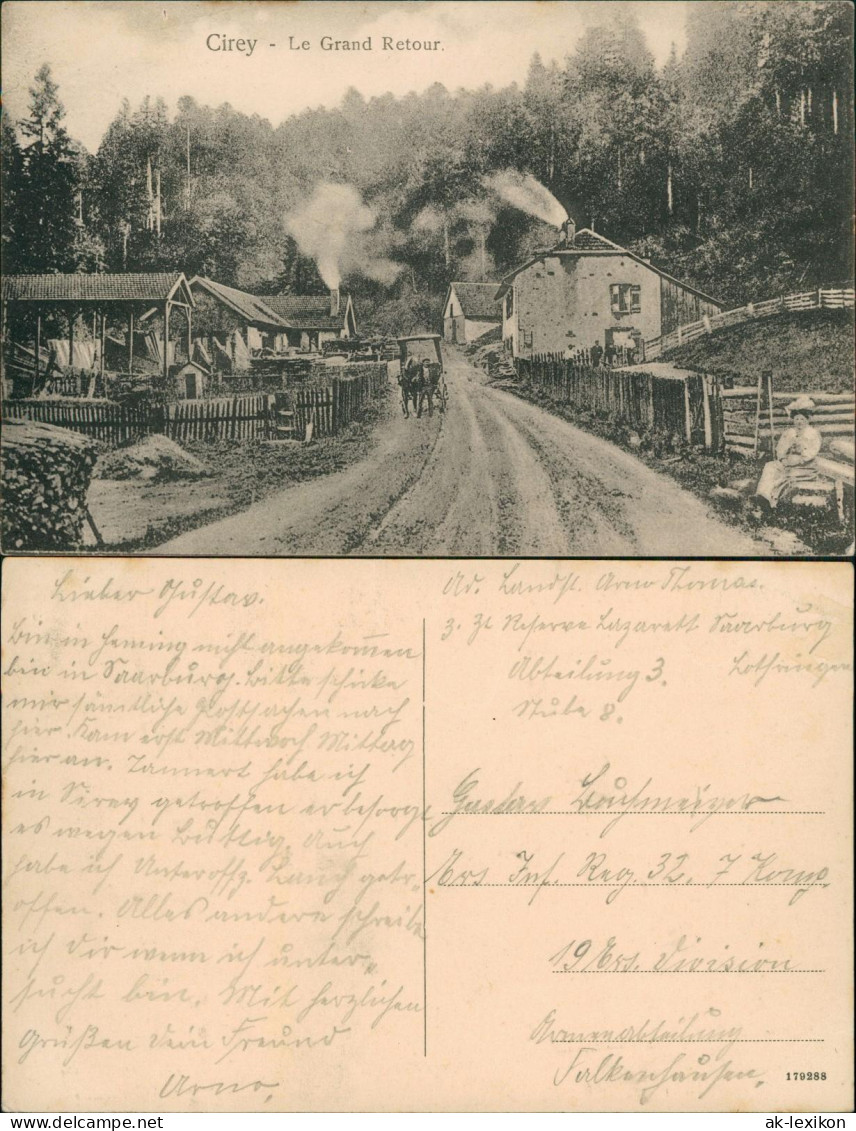 Cirey - Le Grand Retour.
Lieber Gustav.
Bin in Heming nicht angekommen
bin in Saarburg. Bitte schicke
mir sämtliche Postsachen nach
hier. Kam erst Mittwoch Mittag
hier an. Tannert habe ich
in Sirey getroffen er besorgt
es wegen Buttig. Auch
habe ich Unteroffz. Lang getr-
offen. Alles andere schreibe
ich Dir wenn ich unter-
sucht bin. Mit herzlichen
Grüßen Dein Freund
Arno.
Ad. Landst. Arno Thomas.
3. Zt Reserve Lazarett Saarburg
Abteilung 3. Lothringen
Stube 8.
Gustav
Ers Inf. Reg. 32. 7 Komp.
19 Ers. Division
Armeeabteilung
Falkenhausen.
179288
ak-lexikon.com